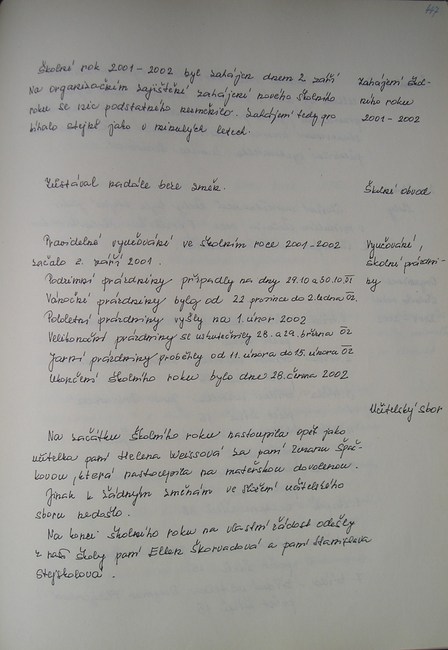 447
Školní rok 2001 - 2002 byl zahájen dnem 2. září
Na organizačním zajištění zahájení nového školního
roku se nic podstatného nezměnilo. Zahájení tedy pro
bíhalo stejně jako v minulých letech.
Zahájení škol-
ního roku
2001 - 2002
Zůstával nadále beze změn.
Školní obvod
Pravidelné vyučování ve školním roce 2001-2002
začalo 2. září 2001.
Podzimní prázdniny připadly na dny 29.10 a 30.10 01
Vánoční prázdniny byly od 22 prosince do 2. ledna 02.
Pololetní prázdniny vyšly na 1. únor 2002
Velikonoční prázdniny se uskutečnily 28. a 29. března 02
Jarní prázdniny proběhly od 11. února do 15. února 02
Ukončení školního roku bylo dne 28. června 2002
Vyučování,
školní prázdni-
ny
Učitelský sbor
Na začátku školního roku nastoupila opět jako
učitelka paní Helena Weissová za paní Zuzanu Špač-
kovou, která nastoupila na mateřskou dovolenou.
Jinak k žádným změnám ve složení učitelského
sboru nedošlo.
Na konci školního roku na vlastní žádost odešly
z naší školy paní Ellen Škorvadová a paní Stanislava
Stejskalová.